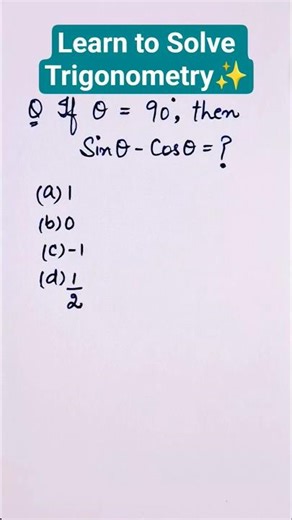 Learn to Solve
Trigonometry✨
Q If θ = 90°, then
Sinθ - Cosθ = ?
(a) 1
(b) 0
(c) -1
(d) 1/2